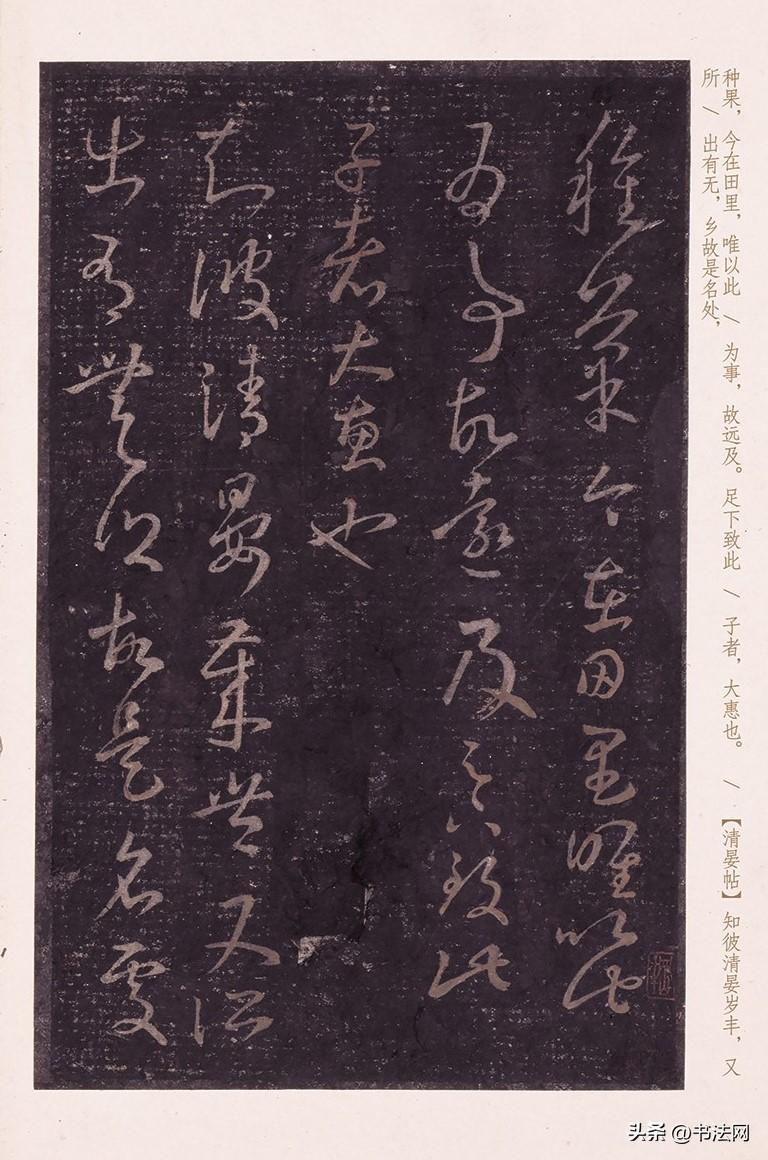 种果，今在田里，唯以此 / 为事，故远及。足下致此 / 子者，大惠也。 / 【清晏帖】知彼清晏岁丰，又
所 / 出有无，乡故是名处，
種菓今在田里唯以此
為事故遠及足下致此
子者大惠也
知彼清晏歲豐又所
出有無鄉故是名處
头条 @书法网